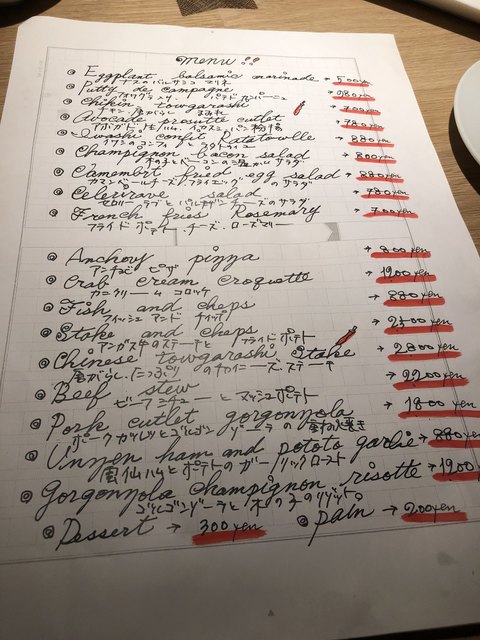 menu !!
◎ Eggplant balsamic marinade → 500yen
ナスのバルサミコマリネ
◎ Putty de campagne → 980yen
◎ Chikin towgarashi → 700yen
チキン 唐がらし
◎ Avocado prosuitte cutlet → 780yen
◎ Iwashi confit Ratatowlle → 880yen
イワシのコンフィ と ラタトゥイユ
◎ Champignon bacon salad → 800yen
木の子とベーコンの温かいサラダ
◎ Camembrt fried egg salad → 880yen
カマンベールチーズ フライエッグ のサラダ
◎ Celerirave salad → 780yen
セロリーラブとパルメザンチーズのサラダ
◎ French fries Rosemary → 700yen
フライド ポテト チーズ・ローズマリー
◎ Anchovy pizza → 800yen
アンチョビ ピザ
◎ Crab cream croquette → 1900yen
カニクリーム コロッケ
◎ Fish and cheps → 880yen
フィッシュ アンド チップ
◎ Stake and cheps → 2500yen
アンガス牛のステーキと フライドポテト
◎ Chinese towgarashi Stake → 2800yen
唐がらし たっぷり のチャイニーズステーキ
◎ Beef stew → 2200yen
ビーフシチュー と マッシュポテト
◎ Pork cutlet gorgonzola → 1800yen
ポークカツレツとゴルゴンゾーラの
◎ Unzen ham and pototo garlic → 880yen
雲仙ハムとポテトのガーリックロースト
◎ Gorgonzola champignon risotte → 1900
ゴルゴンゾーラと木の子のリゾット
◎ Dessert → 300yen ◎ pain → 200yen